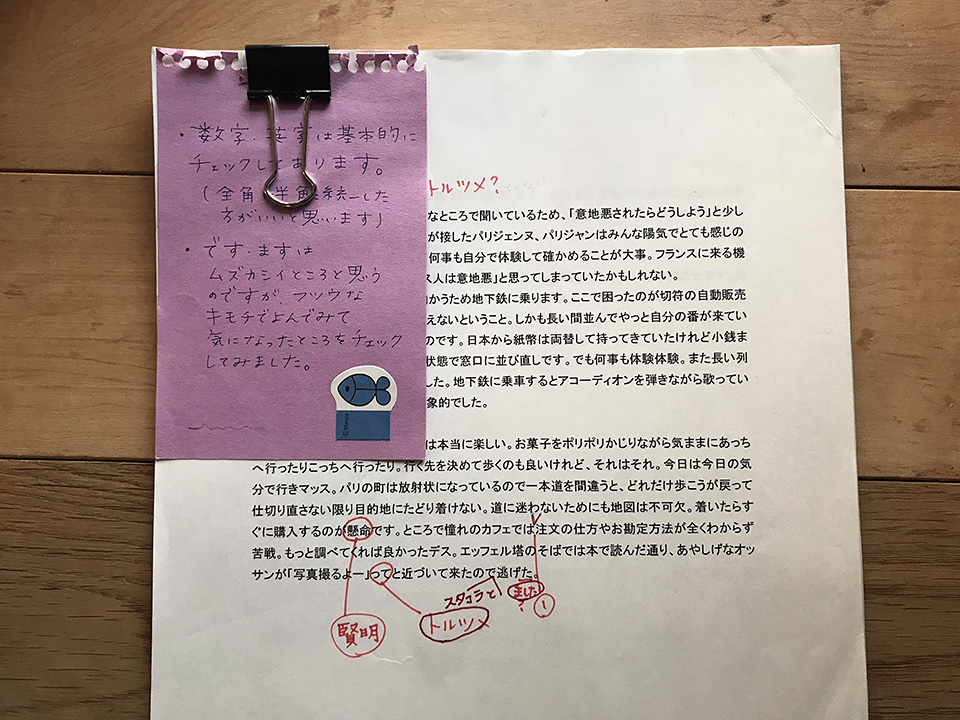 ・数字・英字は基本的に
チェックしてあります。
(全角 半角は統一した
方がいいと思います)
・です・ますは
ムズカシイところと思う
のですが、フツウな
キモチでよんでみて
気になったところをチェック
してみました。
トルツメ?
なところで聞いているため、「意地悪されたらどうしよう」と少し
が接したパリジェンヌ、パリジャンはみんな陽気でとても感じの
何事も自分で体験して確かめることが大事。フランスに来る機
ス人は意地悪」と思ってしまっていたかもしれない。
向かうため地下鉄に乗ります。ここで困ったのが切符の自動販売
えないということ。しかも長い間並んでやっと自分の番が来てい
のです。日本から紙幣は両替して持ってきていたけれど小銭ま
状態で窓口に並び直しです。でも何事も体験体験。また長い列
した。地下鉄に乗車するとアコーディオンを弾きながら歌ってい
象的でした。
は本当に楽しい。お菓子をポリポリかじりながら気ままにあっち
へ行ったりこっちへ行ったり。行く先を決めて歩くのも良いけれど、それはそれ。今日は今日の気
分で行きマッス。パリの町は放射状になっているので一本道を間違うと、どれだけ歩こうが戻って
仕切り直さない限り目的地にたどり着けない。道に迷わないためにも地図は不可欠。着いたらす
ぐに購入するのが懸命です。ところで憧れのカフェでは注文の仕方やお勘定方法が全くわからず
苦戦。もっと調べてくれば良かったデス。エッフェル塔のそばでは本で読んだ通り、あやしげなオッ
サンが「写真撮るよー」ってと近づいて来たので逃げた。
スタコラと
ました
?
賢明
トルツメ